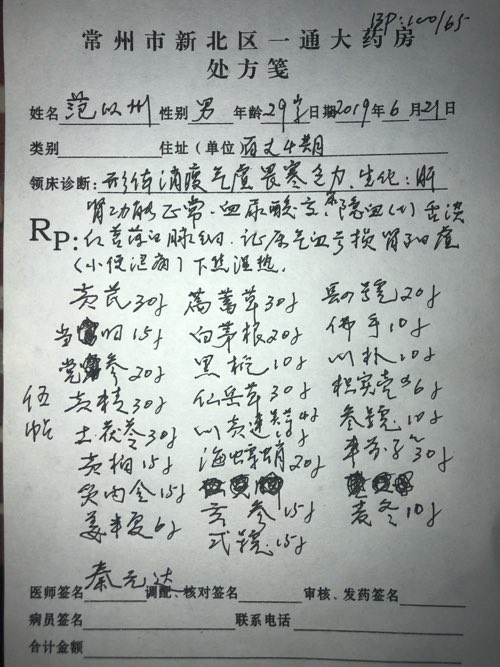 BP:100/65
常州市新北区一通大药房
处方笺
姓名 范以州 性别 男 年龄 29岁 日期 2019年6月21日
类别 住址(单位
领床诊断:形体消瘦气虚畏寒乏力.生化:肝
肾功能正常.血尿酸高.尿隐血(+)舌淡
RP: 红苔薄白脉细.证属气血亏损肾阳虚
(小便混病)下焦湿热.
黄芪30g 萹蓄草30g 20g
当归15g 白茅根20g 佛手10g
党参20g 黑栀10g 川朴10g
黄精30g 仙鹤草30g 枳实壳各6g
伍帖 土茯苓30g 川黄连 10g
黄柏15g 海螵蛸20g 车前子30g
炙内金15g
姜半夏6g 玄参15g 麦冬10g
15g
医师签名 秦元达 调配、核对签名 审核、发药签名
病员签名 联系电话
合计金额